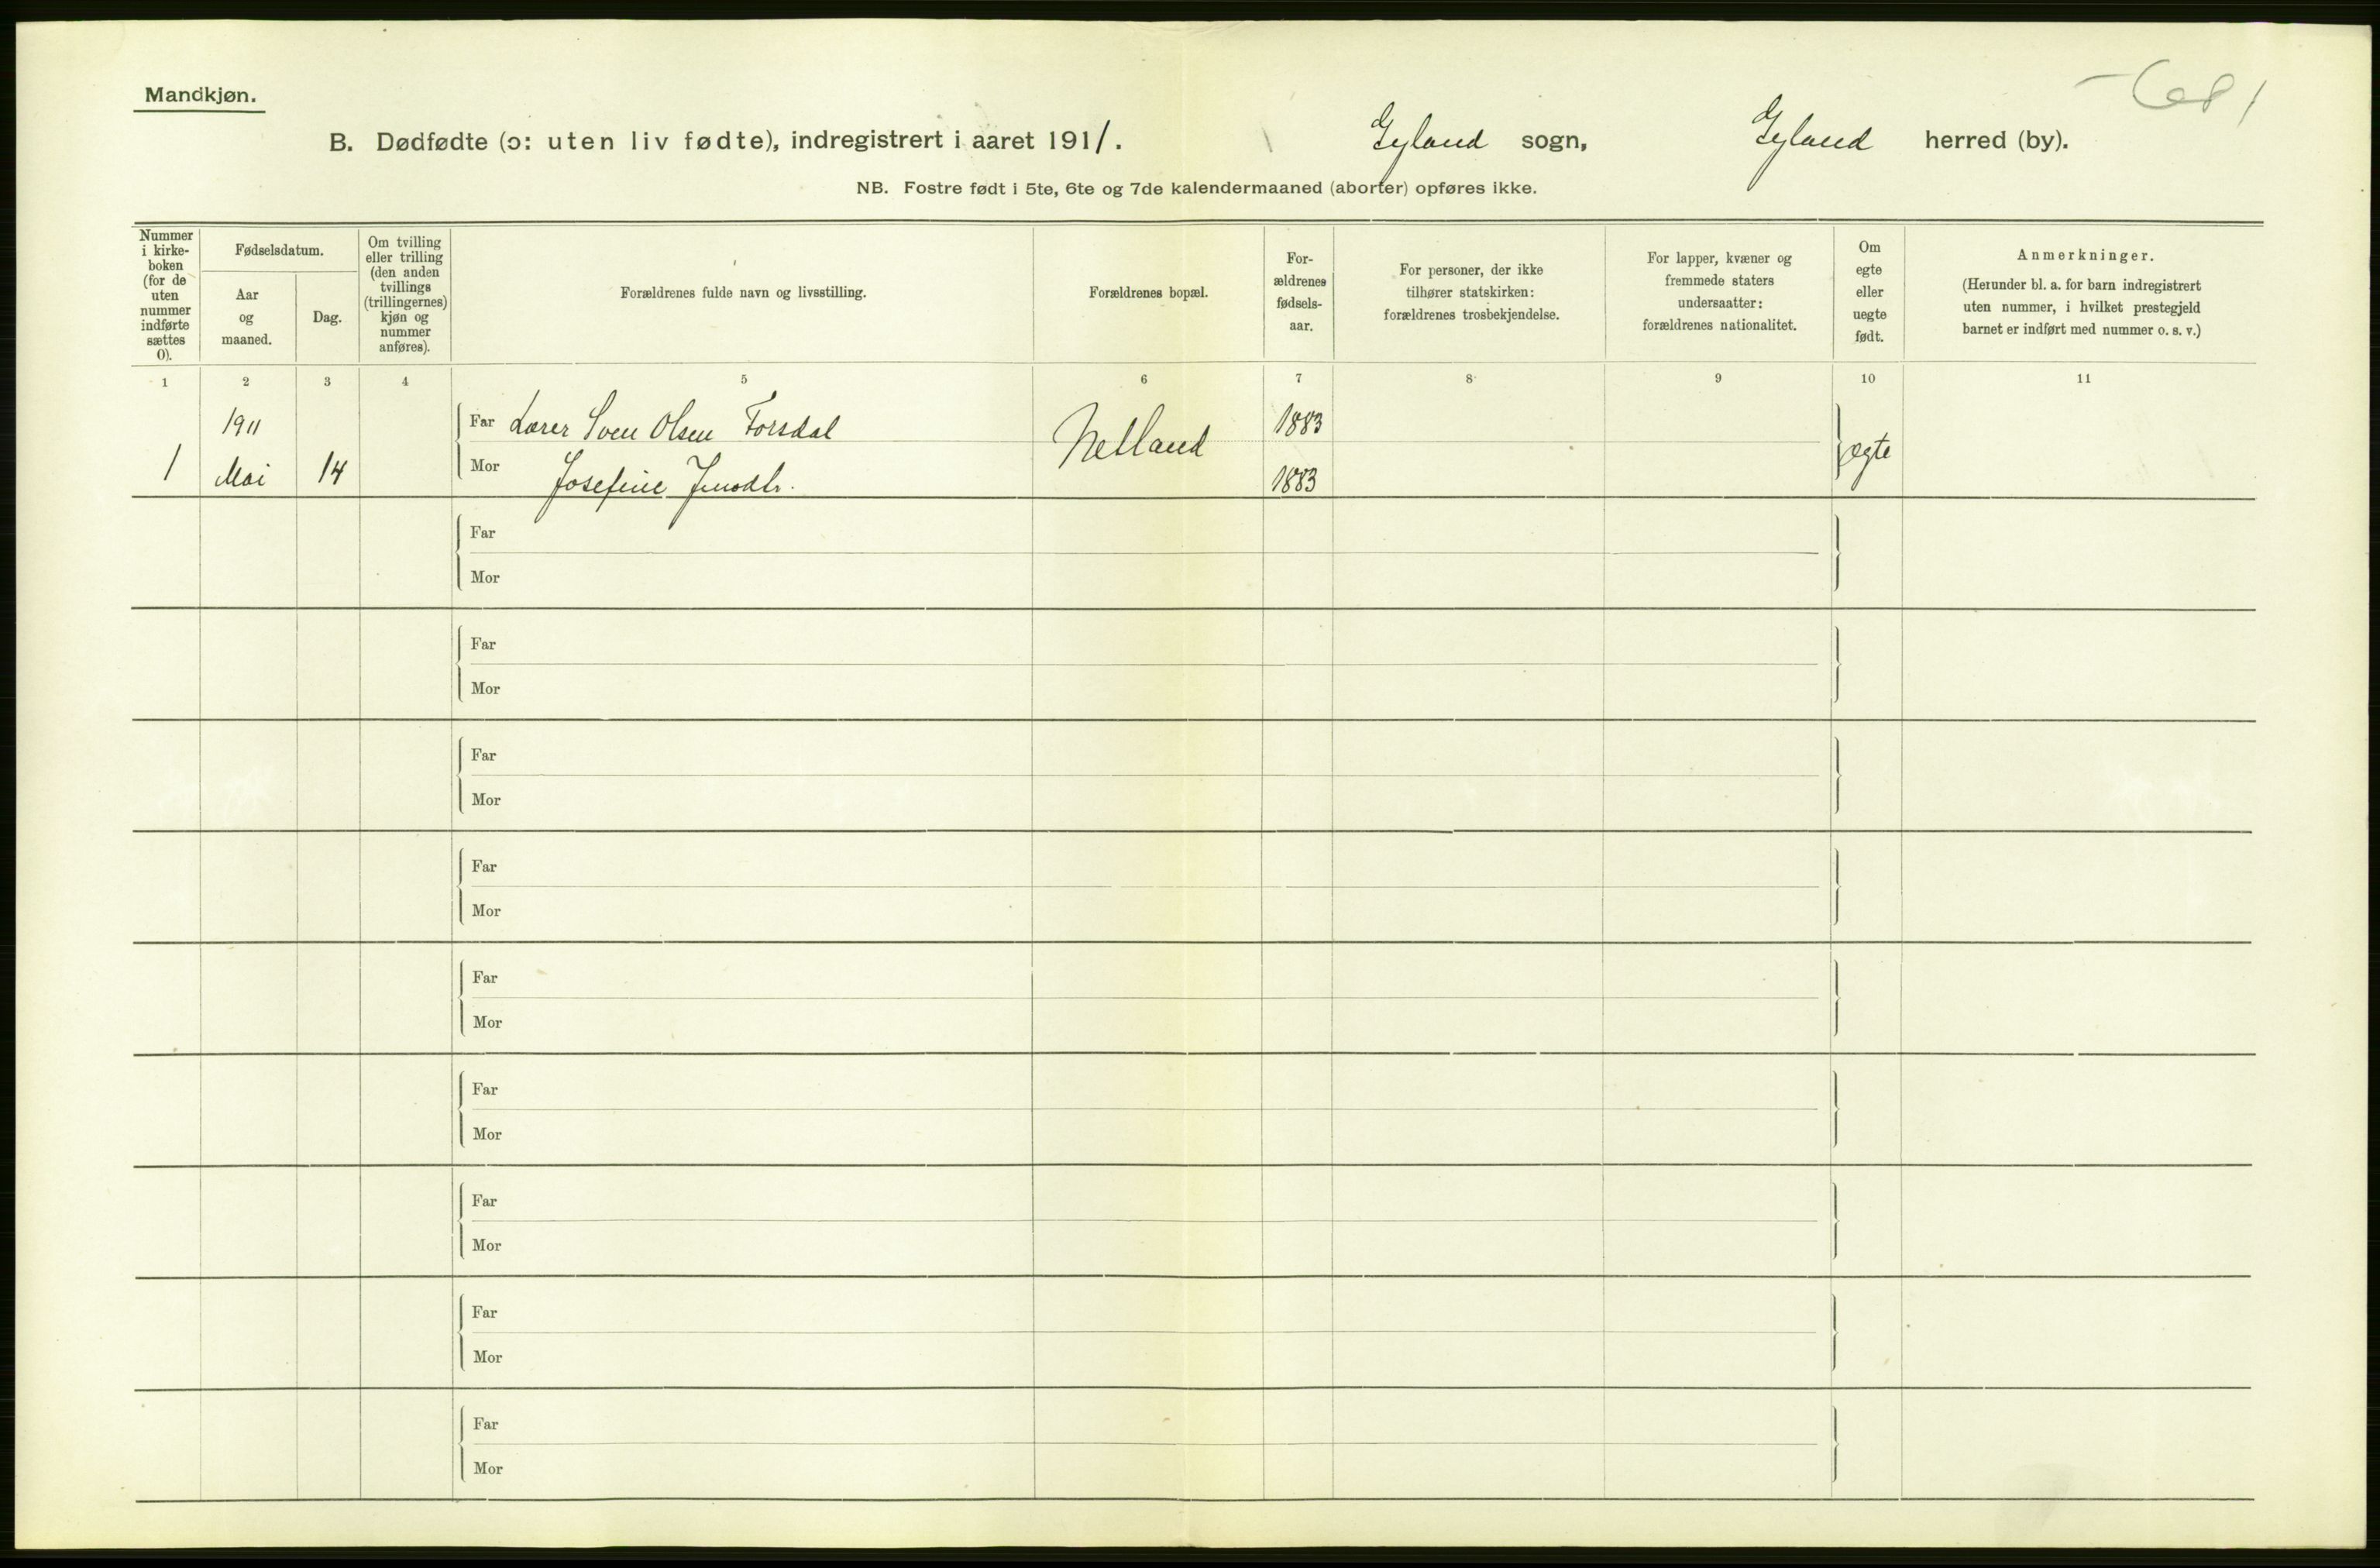 Mandkjøn.
B. Dødfødte (ɔ: uten liv fødte), indregistrert i aaret 1911. Gyland sogn, Gyland herred (by).
NB. Fostre født i 5te, 6te og 7de kalendermaaned (aborter) opføres ikke.
Nummer
i kirke-
boken
(for de
uten
nummer
indførte
sættes
0).
Fødselsdatum.
Aar
og
maaned.
Dag.
Om tvilling
eller trilling
(den anden
tvillings
(trillingernes)
kjøn og
nummer
anføres).
Forældrenes fulde navn og livsstilling.
Forældrenes bopæl.
For-
ældrenes
fødsels-
aar.
For personer, der ikke
tilhører statskirken:
forældrenes trosbekjendelse.
For lapper, kvæner og
fremmede staters
undersaatter:
forældrenes nationalitet.
Om
egte
eller
uegte
født.
Anmerkninger.
(Herunder bl. a. for barn indregistrert
uten nummer, i hvilket prestegjeld
barnet er indført med nummer o. s. v.)
1 2 3 4 5 6 7 8 9 10 11
1911 Far Lærer Sven Olsen Forsdal Netland 1883
1 Mai 14 Mor Josefine 1883 egte
Far
Mor
Far
Mor
Far
Mor
Far
Mor
Far
Mor
Far
Mor
Far
Mor
Far
Mor
Far
Mor